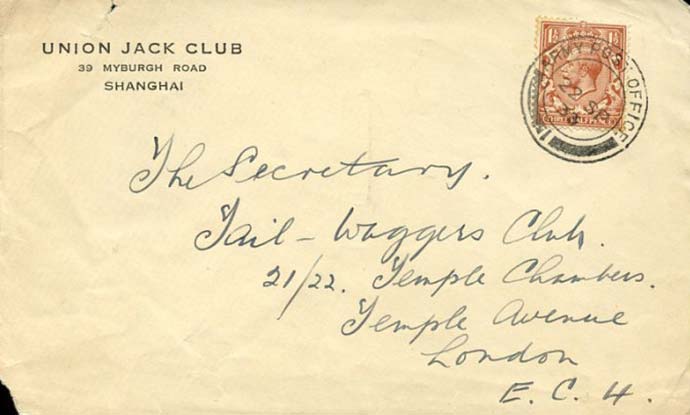 UNION JACK CLUB
39 MYBURGH ROAD
SHANGHAI
1½ 1½
THREE HALFPENCE
ARMY POST OFFICE
The Secretary.
Tail - Waggers Club.
21/22. Temple Chambers.
Temple Avenue
London
E. C. 4.